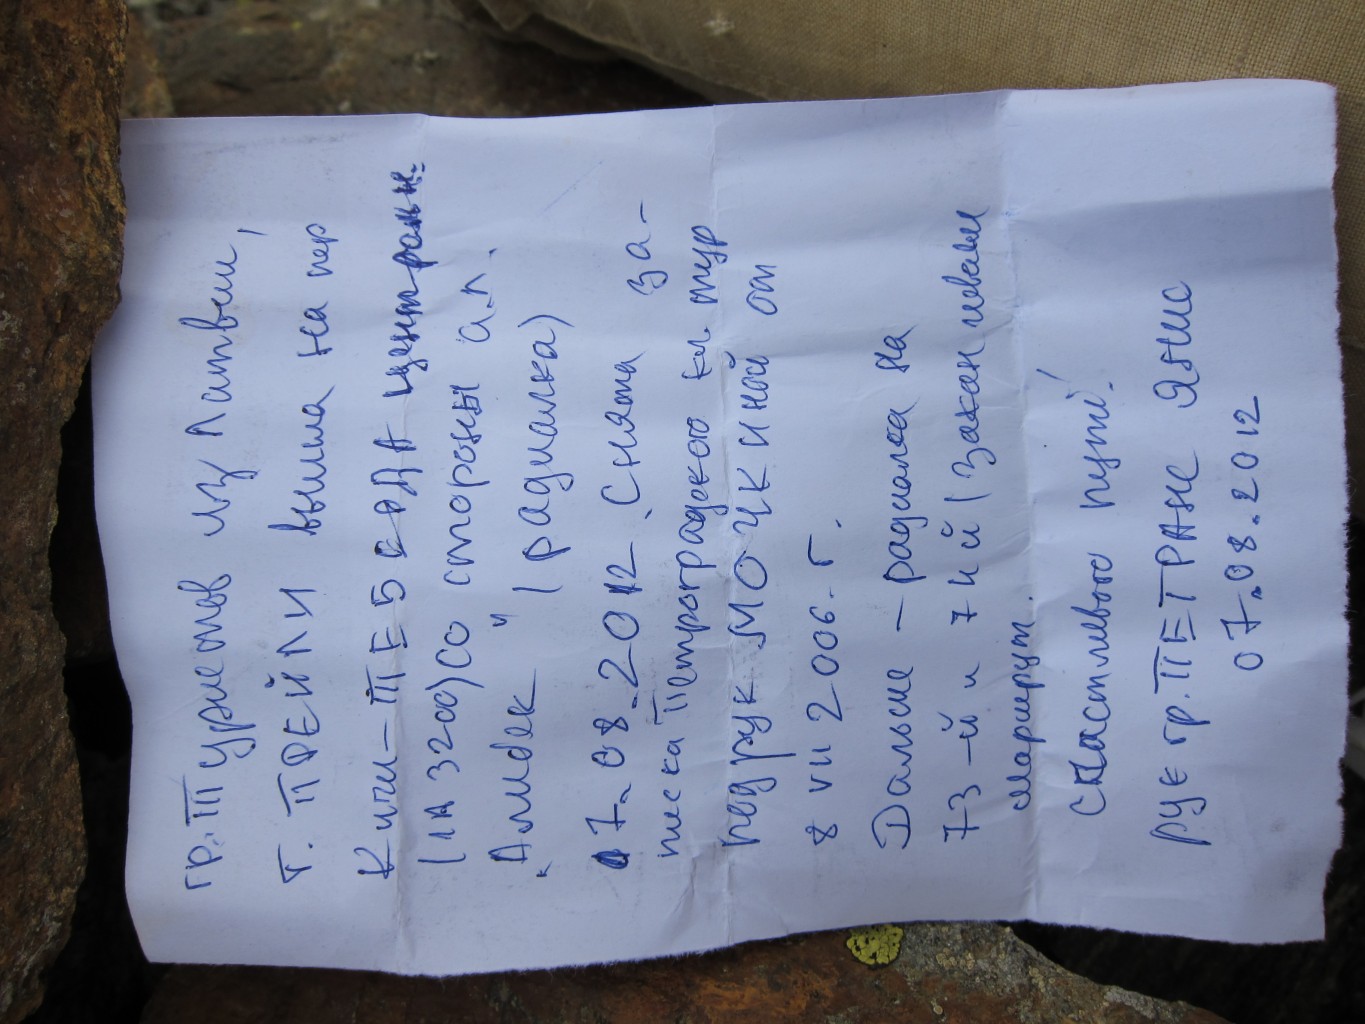 гр. Туристов из Латвии,
г. ПРЕЙЛИ вышла на пер
Кичи-ТЕБЕРДА централь.
(1А 3200) со стороны а.л.
"Алибек" (радиалка)
07.08.2012. Снята за-
писка Петроградского кл. тур
под рук. МОЧКИНОЙ от
8 VII 2006. г.
Дальше – радиалка на
73-й и 74й (заканчиваем
маршрут.
Счастливого пути!
рук гр. ПЕТРАНС Янис
07.08.2012